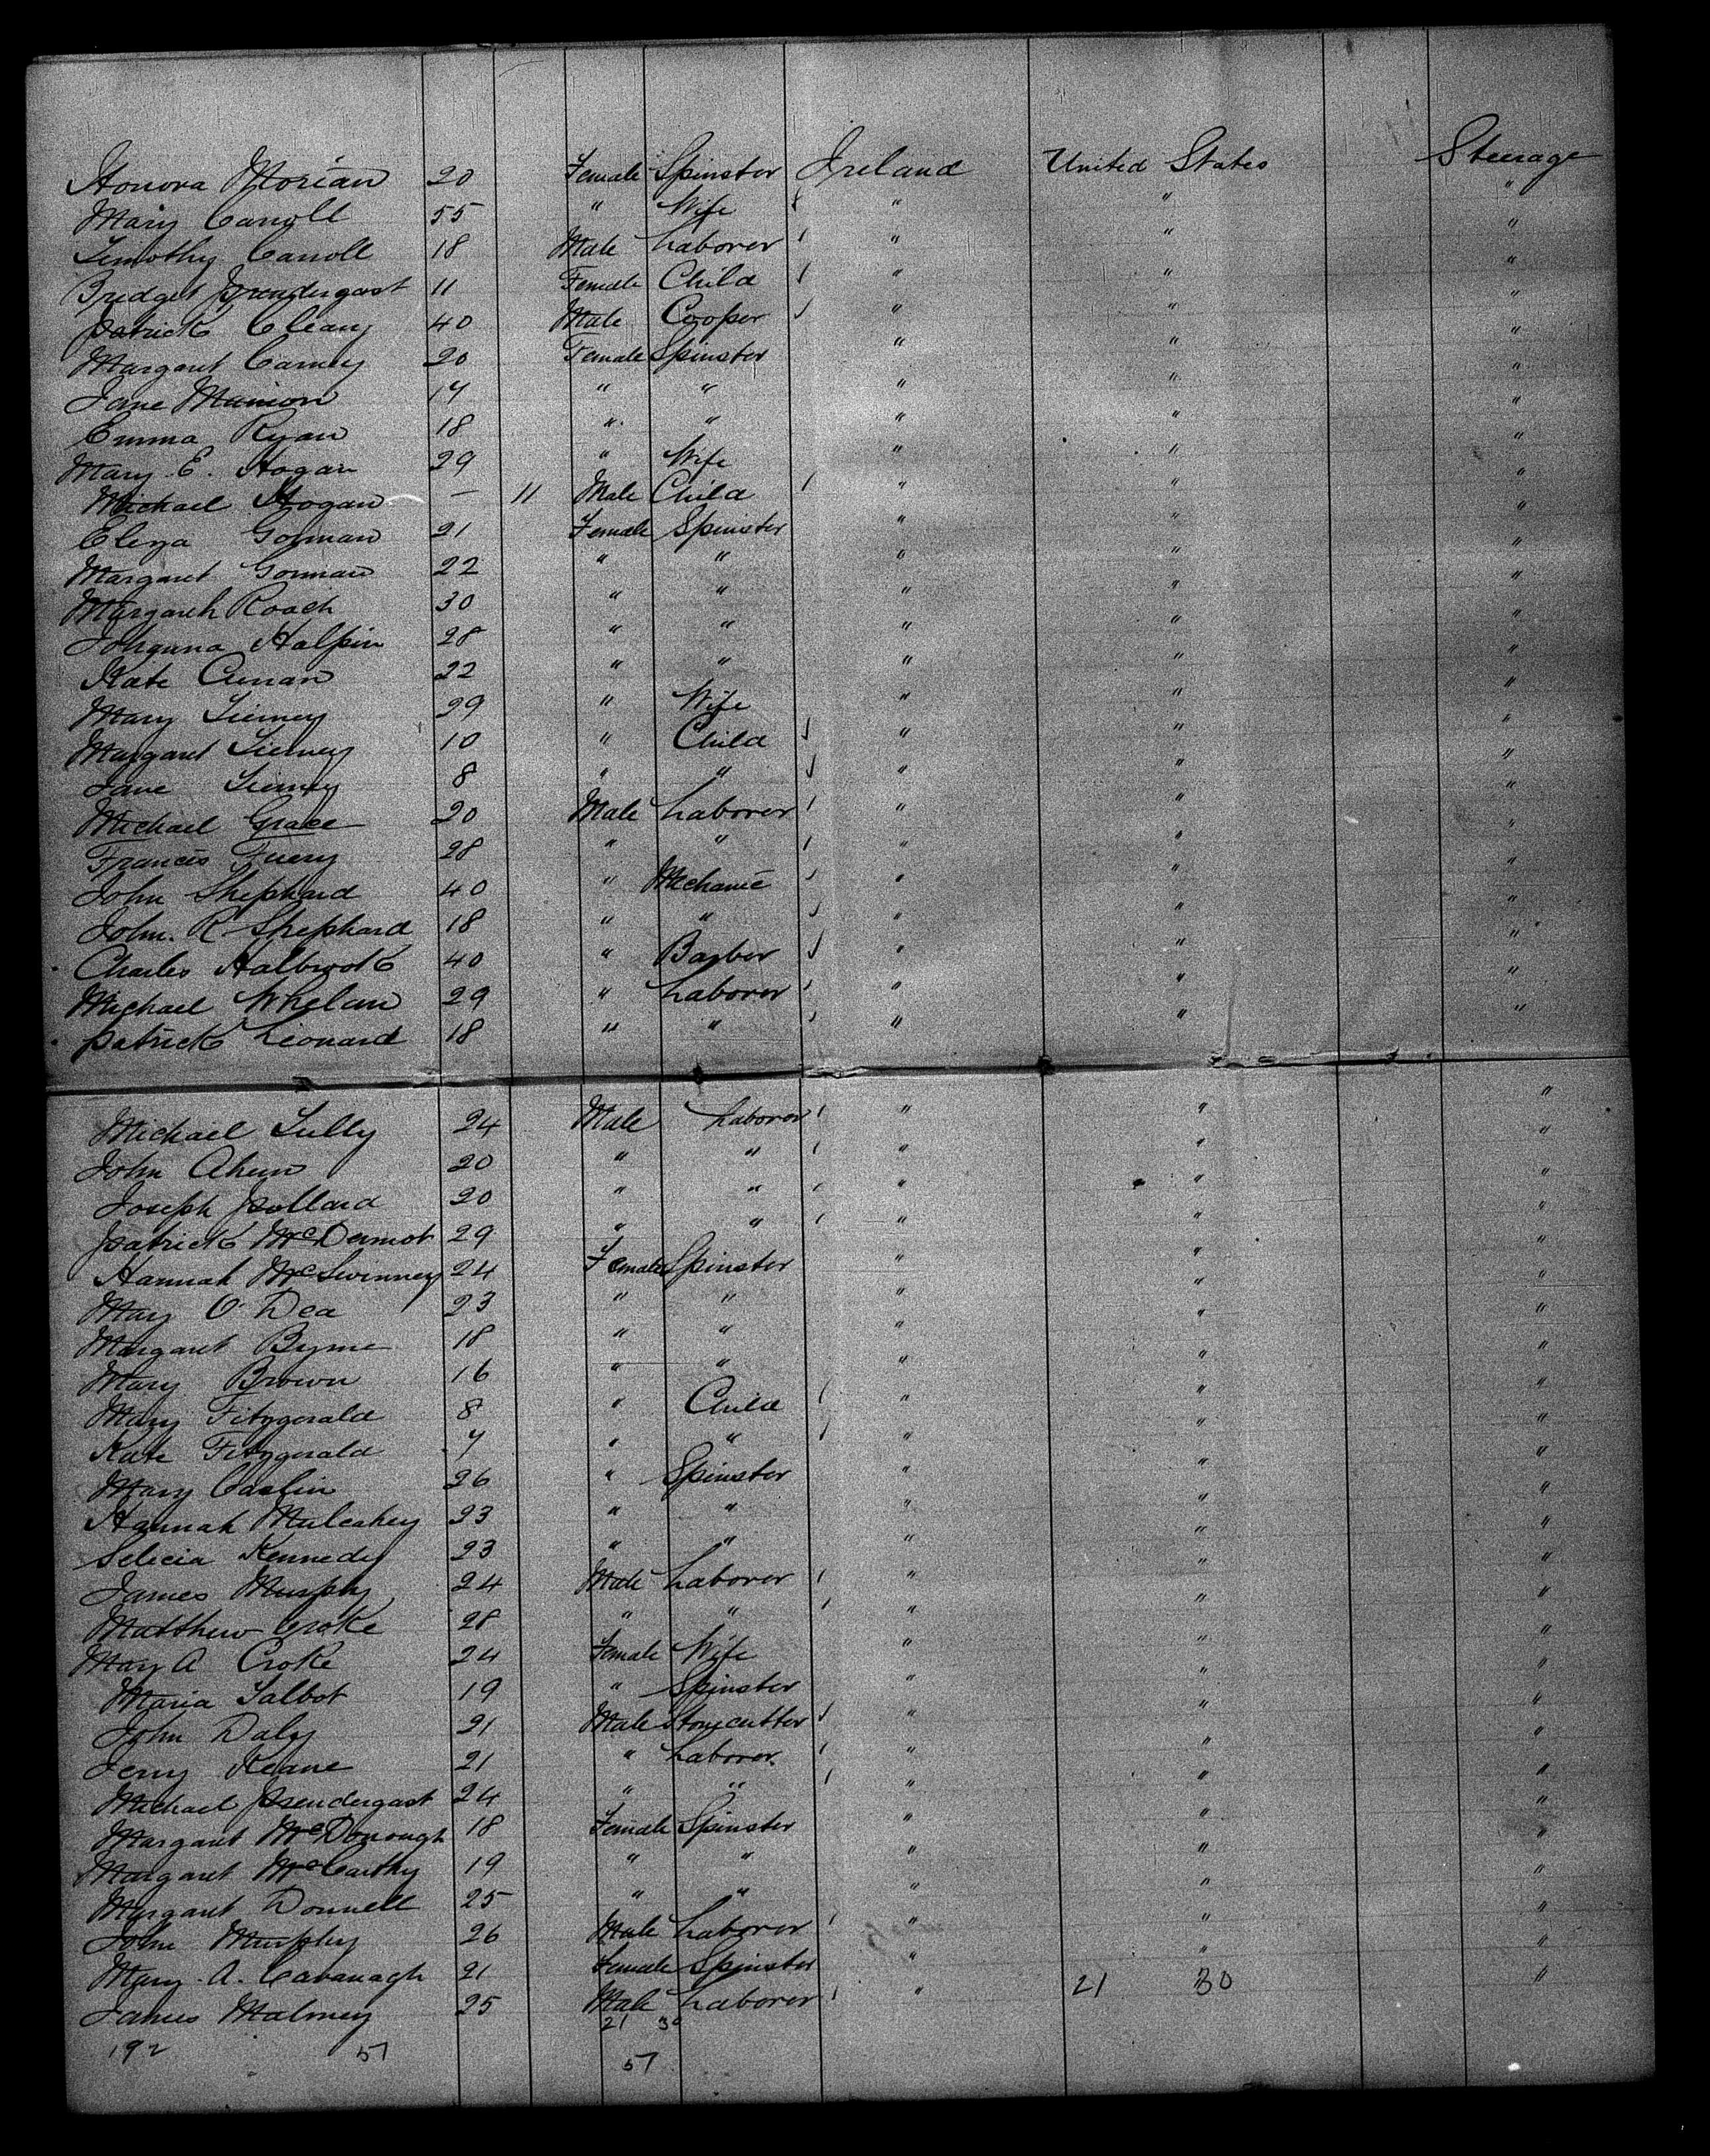 Honora Morian 20 Female Spinster Ireland United States Steerage
Mary Carroll 55 " Wife " " "
Timothy Carroll 18 Male Laborer " " "
Bridget Prendergast 11 Female Child " " "
Patrick Cleary 40 Male Cooper " " "
Margaret Carney 20 Female Spinster " " "
Jane Manion 17 " " " " "
Emma Ryan 18 " " " " "
Mary E. Hogan 29 " Wife " " "
Michael Hogan — 11 Male Child " " "
Eliza Gorman 21 Female Spinster " " "
Margaret Gorman 22 " " " " "
Margareth Roach 30 " " " " "
Johanna Halpin 28 " " " " "
Kate 22 " " " " "
Mary Tierney 29 " Wife " " "
Margaret Tierney 10 " Child " " "
Jane Tierney 8 " " " " "
Michael Grace 20 Male Laborer " " "
Francis Fuery 28 " " " " "
John Shephard 40 " Mechanic " " "
John. R. Shephard 18 " " " " "
Charles 40 " Barber " " "
Michael Whelan 29 " Laborer " " "
Patrick Leonard 18 " " " " "
Michael Tully 24 Male Laborer " " "
John Ahern 20 " " " " "
Joseph Pollard 20 " " " " "
Patrick McDermot 29 " " " " "
Hannah McSwinney 24 Female Spinster " " "
Mary O'Dea 23 " " " " "
Margaret Byrne 18 " " " " "
Mary Brown 16 " " " " "
Mary Fitzgerald 8 " Child " " "
Kate Fitzgerald 7 " " " " "
Mary Caslin 26 " Spinster " " "
Hannah Mulcahey 23 " " " " "
Selicia Kennedy 23 " " " " "
James Murphy 24 Male Laborer " " "
Matthew Croke 28 " " " " "
Mary A Croke 24 Female Wife " " "
Maria Talbot 19 " Spinster " " "
John Daly 21 Male Stonecutter " " "
Jerry Keane 21 " Laborer " " "
Michael Prendergast 24 " " " " "
Margaret McDonough 18 Female Spinster " " "
Margaret McCarthy 19 " " " " "
Margaret Donnell 25 " " " " "
John Murphy 26 Male Laborer " " "
Mary. A. Cavanagh 21 Female Spinster " " "
James Malmey 25 Male Laborer " 21 30 "
21 30
192 51 51